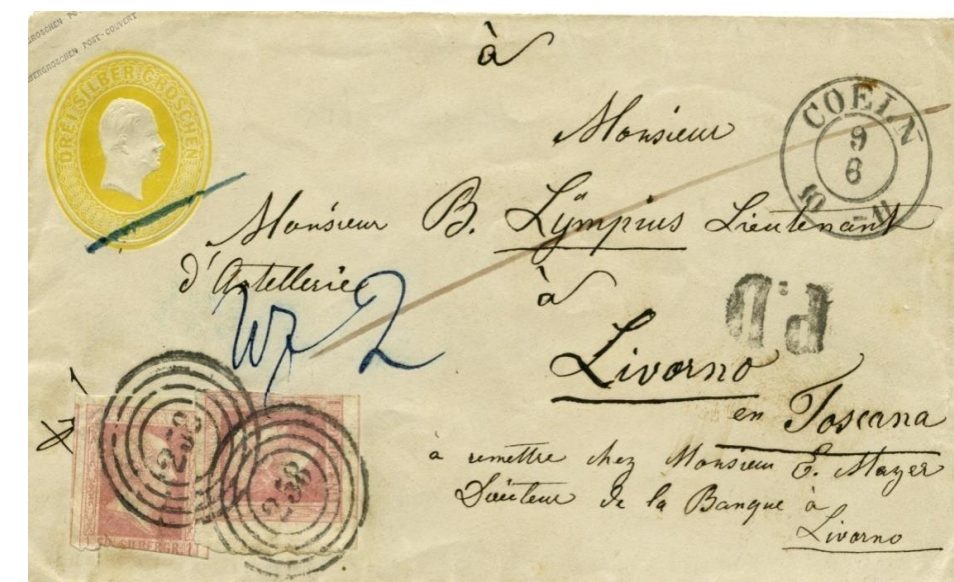 GROSCHEN POST-COUVERT
DREI SILBER GROSCHEN
à
Monsieur
COELN
9
6
10 - 11
Monsieur B. Lÿmpius Lieutenant
d'Artellerie
à
P.D
W 2
Livorno
en Toscana
a remettre chez Monsieur E. Mayer
Directeur de la Banque à
Livorno
258
258
1 SILBERGR. 1